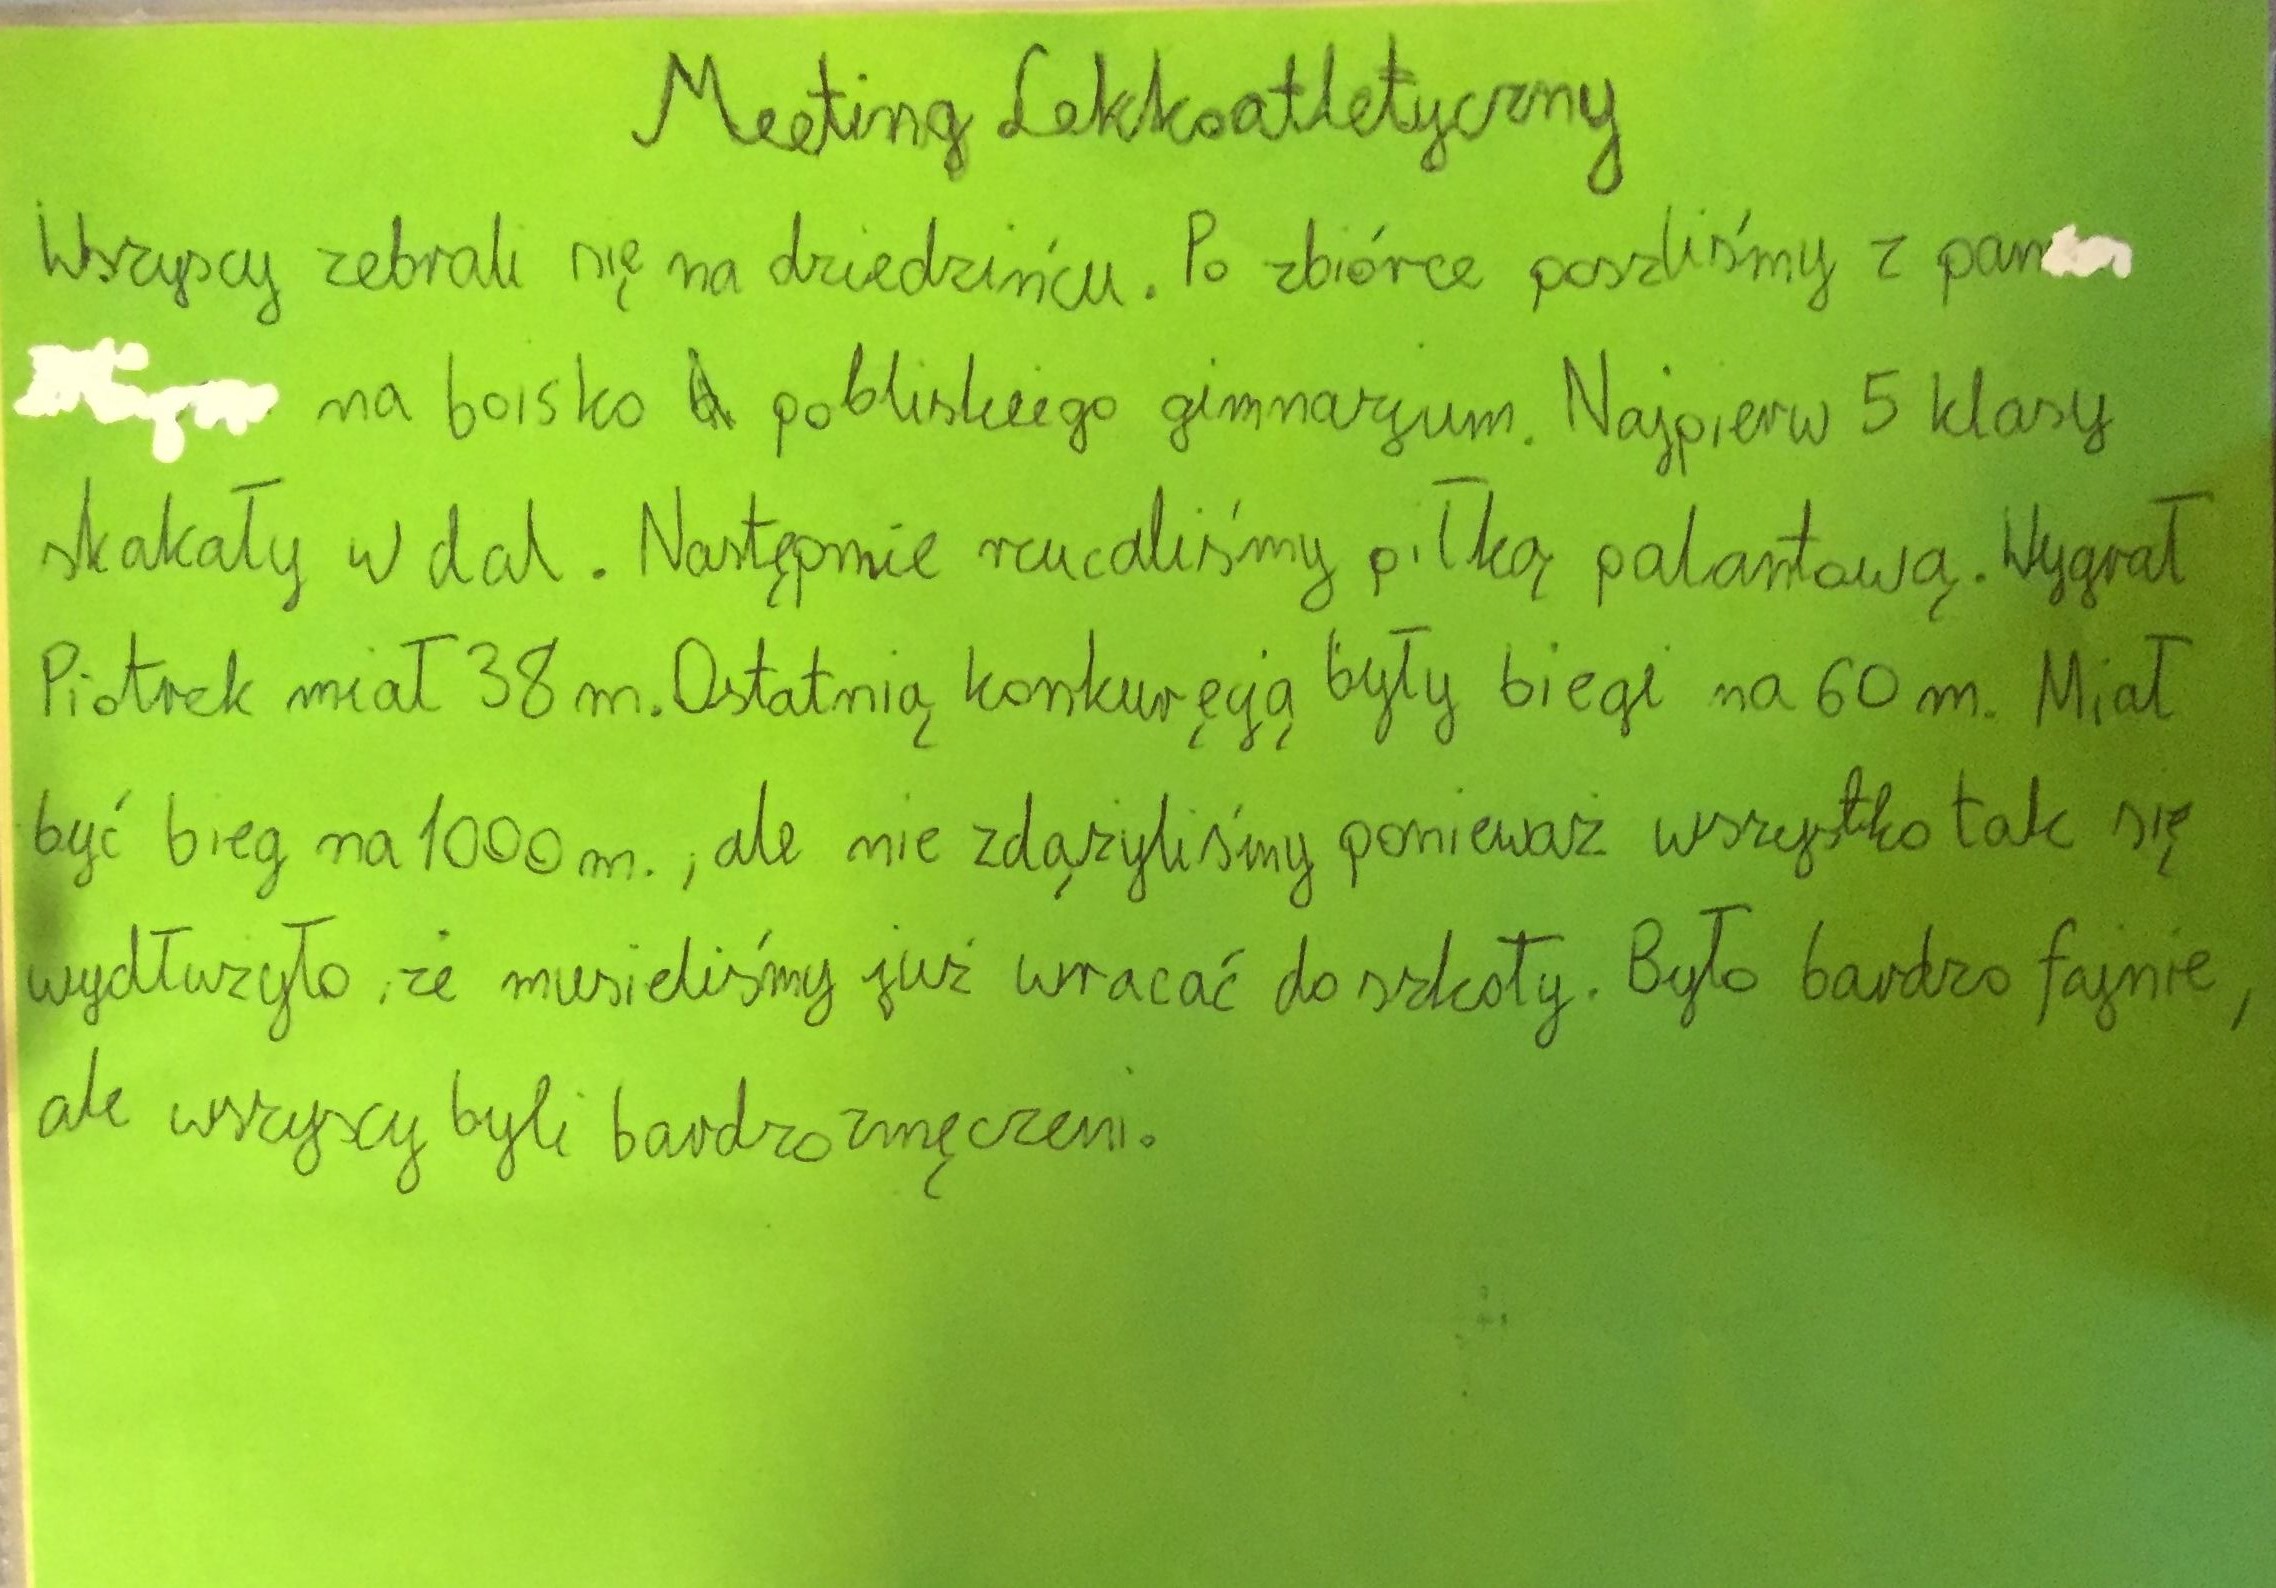 Meeting Lekkoatletyczny
Wszyscy zebrali się na dziedzińcu. Po zbiórce poszliśmy z pan
na boisko pobliskiego gimnazjum. Najpierw 5 klasy
skakały w dal. Następnie rzucaliśmy piłką palantową. Wygrał
Piotrek miał 38 m. Ostatnią konkuręcją były biegi na 60 m. Miał
być bieg na 1000 m., ale nie zdążyliśmy ponieważ wszystko tak się
wydłużyło, że musieliśmy już wracać do szkoły. Było bardzo fajnie,
ale wszyscy byli bardzo zmęczeni.